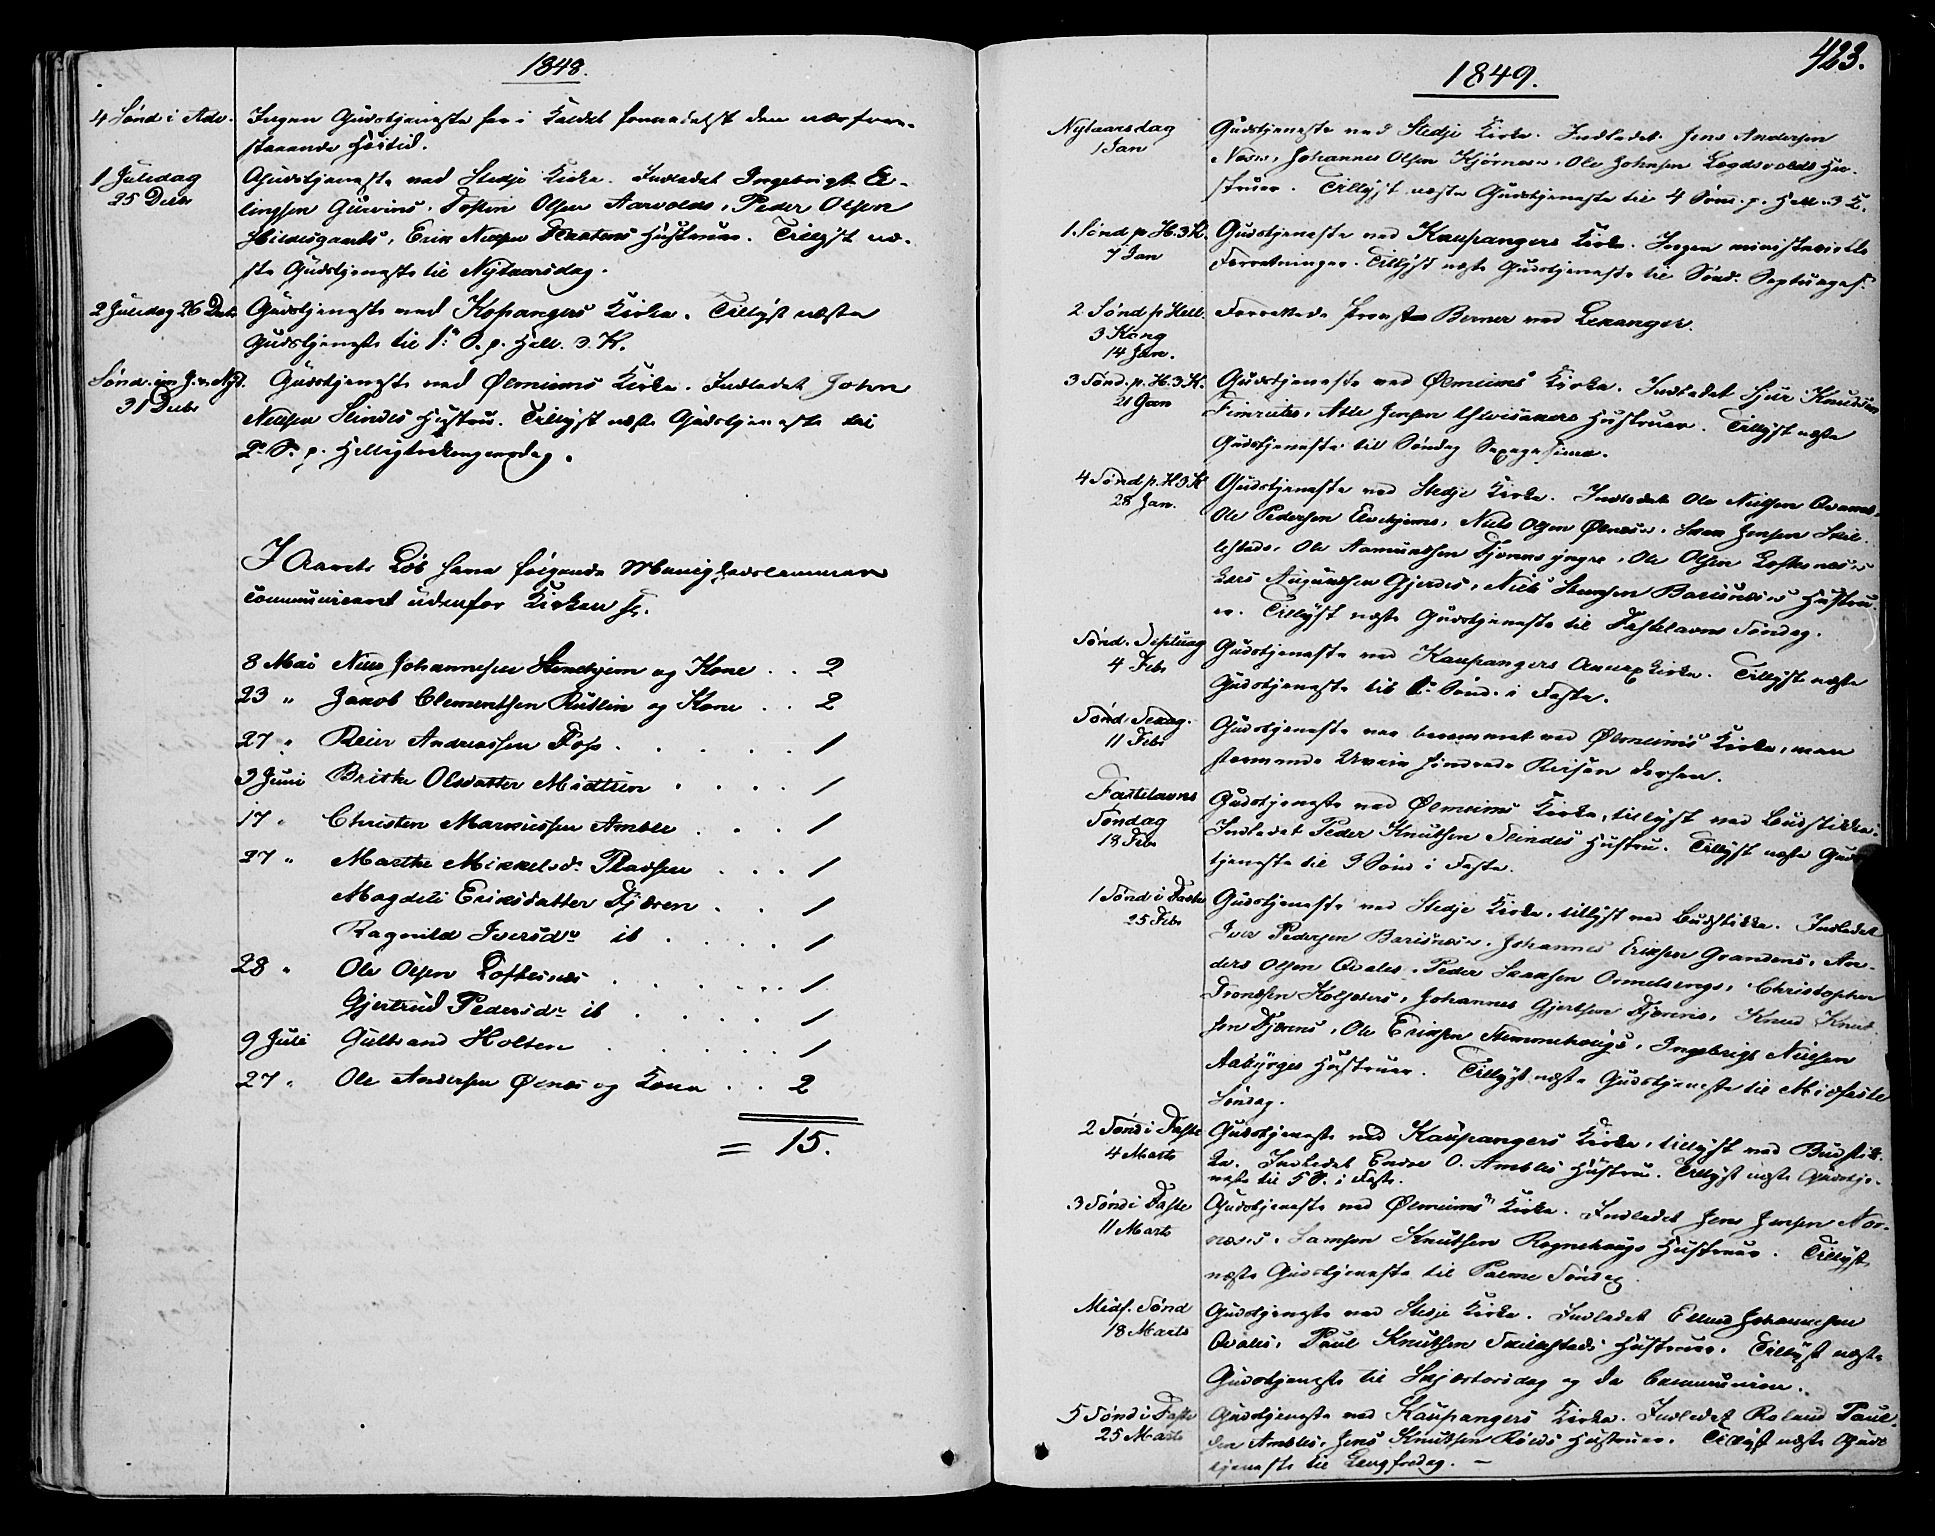 1848.
4 Sønd i Adv. Ingen Gudstjeneste her i Kaldet formedelst den nærfore-
staaende Høitid.
1 Juledag Gudstjeneste ved Stedje Kirke. Indledet Ingebrigt El-
25 Decbr lingsen Gurvins, Olsen Aarvolds, Peder Olsen
Hildesgaards, Erik Nielsen Hustruer. Tillyst næ-
ste Gudstjeneste til Nytaarsdag.
2 Juledag 26 Decbr Gudstjeneste ved Kopangers Kirke. Tillyst næste
Gudstjeneste til 1e S. p. Hell. 3 K.
Sønd. m. J. & Nyt. Gudstjeneste ved Ølmeims Kirke. Indledet John
31 Decbr Nielsen Slindes Hustru. Tillyst næste Gudstjeneste til
2e S. p. Helligtrekongersdag.
I Aarets Løb have følgende Menighedslemmer
communiceret udenfor Kirken sc.
8 Mai Niels Johannesen Stenehjem og Kone . . 2
23 " Jakob Clementsen Rutlin og Kone . . 2
27 " Reier Andreassen Foss . . . . . 1
3 Juni Brithe Olsdatter Midtun . . . . 1
17 " Christen Markussen Amble . . . 1
27 " Marthe Mikkelsd. Pladsen . . . 1
Magdeli Eriksdatter Fjæren . . 1
Ragnild Iversdr ib . . . . 1
28 " Ole Olsen Loftesnæs . . . . . 1
Gjertrud Pedersdr ib . . . . 1
9 Juli Gulbrand Holten . . . . . 1
27 " Ole Andersen Ølnæs og Kone . . 2
= 15.
423.
1849.
Nytaarsdag Gudstjeneste ved Stedje Kirke. Indledet Jens Andersen
1 Jan Næss, Johannes Olsen Kjørnes, Ole Johnsen Hu-
struer. Tillyst næste Gudstjeneste til 4 Sønd. p. Hell. 3 K.
1. Sønd p. H. 3 K. Gudstjeneste ved Kaupangers Kirke. Ingen ministerielle
7 Jan Forretninger. Tillyst næste Gudstjeneste til Sønd. Septuages.
2 Sønd p Hell. Forrettede Provst Berner ved Lekanger.
3 Kong
14 Jan.
3 Sønd. p. H. 3 K. Gudstjeneste ved Ølmeims Kirke. Indledet Sjur Knudsen
21 Jan Fimreites, Atle Jensen Hustruer. Tillyst næste
Gudstjeneste til Søndag Sexagesima.
4 Sønd p. H. 3 K Gudstjeneste ved Stedje Kirke. Indledet Ole Nielsen Qvams,
28 Jan. Ole Pedersen Elvehjems, Niels Olsen Ølnæs, Jensen Skil-
lestads, Ole Aamundsen Fjærens yngre, Ole Olsen Loftesnæs,
Lars Augundsen Gjerdes, Niels Stensen Barsnæs's Hustru-
er. Tillyst næste Gudstjeneste til Fastelavns Søndag.
Sønd. Septuag Gudstjeneste ved Kaupangers Annex Kirke. Tillyst næste
4 Febr Gudstjeneste til 1e Sønd. i Faste.
Sønd. Sexag. Gudstjeneste var berammet ved Ølmeims Kirke, men
11 Febr stormende Uveir hindrede Reisen derhen.
Fastelavns Gudstjeneste ved Ølmeims Kirke, tillyst ved Budstikke.
Søndag Indledet Peder Knudsen Slindes Hustru. Tillyst næste Guds-
18 Febr tjeneste til 3 Sønd i Faste.
1 Sønd i Faste Gudstjeneste ved Stedje Kirke, tillyst ved Budstikke. Indledet
25 Febr Iver Pedersen Barsnæs, Johannes Eriksen Grandens, An-
ders Olsen Qvales, Peder Ormelsengs, Christopher
Trondsen Holsæters, Johannes Gjertsen Fjærens, Knud Knud-
sen Fjærens, Ole Eriksen Stemmehougs, Ingebrigt Nielsen
Aabyrges Hustruer. Tillyst næste Gudstjeneste til Midfaste
Søndag.
2 Sønd i Faste Gudstjeneste ved Kaupangers Kirke, tillyst ved Budstik-
4 Marts ke. Indledet Endre O. Ambles Hustru. Tillyst næste Gudstje-
neste til 5 S. i Faste.
3 Sønd i Faste Gudstjeneste ved Ølmeims Kirke. Indledet Jens Jensen Nor-
11 Marts næs's, Samson Knudsen Rognehougs Hustruer. Tillyst
næste Gudstjeneste til Palme Søndag
Midf. Sønd Gudstjeneste ved Stedje Kirke. Indledet Ellend Johannesen
18 Marts Qvales, Paul Knudsen Skilestads Hustruer. Tillyst næste
Gudstjeneste til Skjærtorsdag og da Communion.
5 Sønd i Faste Gudstjeneste ved Kaupangers Kirke. Indledet Roland Paul-
25 Marts sen Ambles, Jens Knudsen Hustruer. Tillyst næste Guds-
tjeneste til Langfredag. —